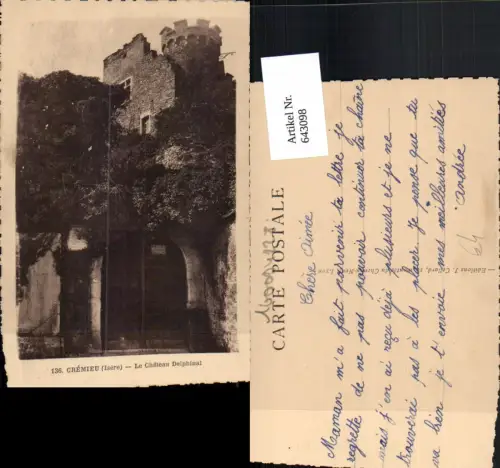 136. CRÉMIEU (Isère) — Le Château Delphinal
Artikel Nr.
643098
CARTE POSTALE
Chère Aimée
Maman m'a fait parvenir ta lettre je
regrette de ne pas pouvoir continuer ta chaîne
mais j'en ai reçu déjà plusieurs et je ne
trouverai pas à les placer. Je pense que tu
va bien je t'envoie mes meilleures amitiés
Andrée
64